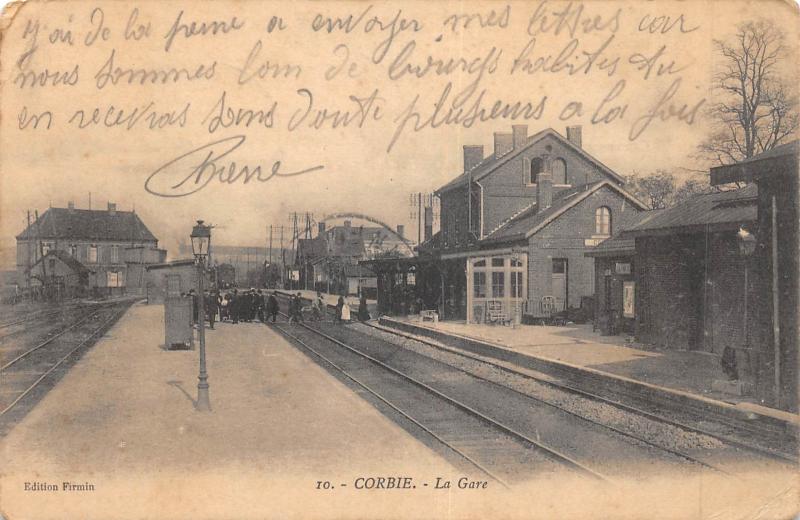 j'ai de la peine a envoyer mes lettres car
nous sommes loin de bourgs habites tu
en recevras sans doute plusieurs a la fois
Pierre
Edition Firmin
10. - CORBIE. - La Gare